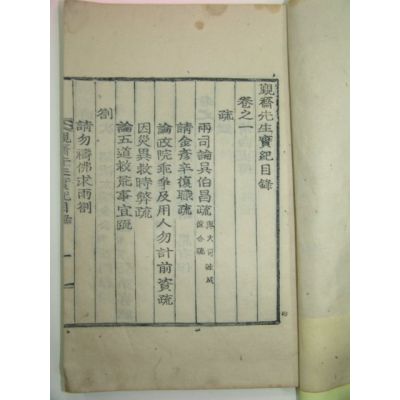 覲齋先生實紀目錄
卷之一
疏
兩司論吳伯昌疏
請金彥辛復職疏
論政院乖爭及用人勿計前資疏
因災異救時弊疏
論五道救荒事宜疏
劄
請勿禱佛求雨劄